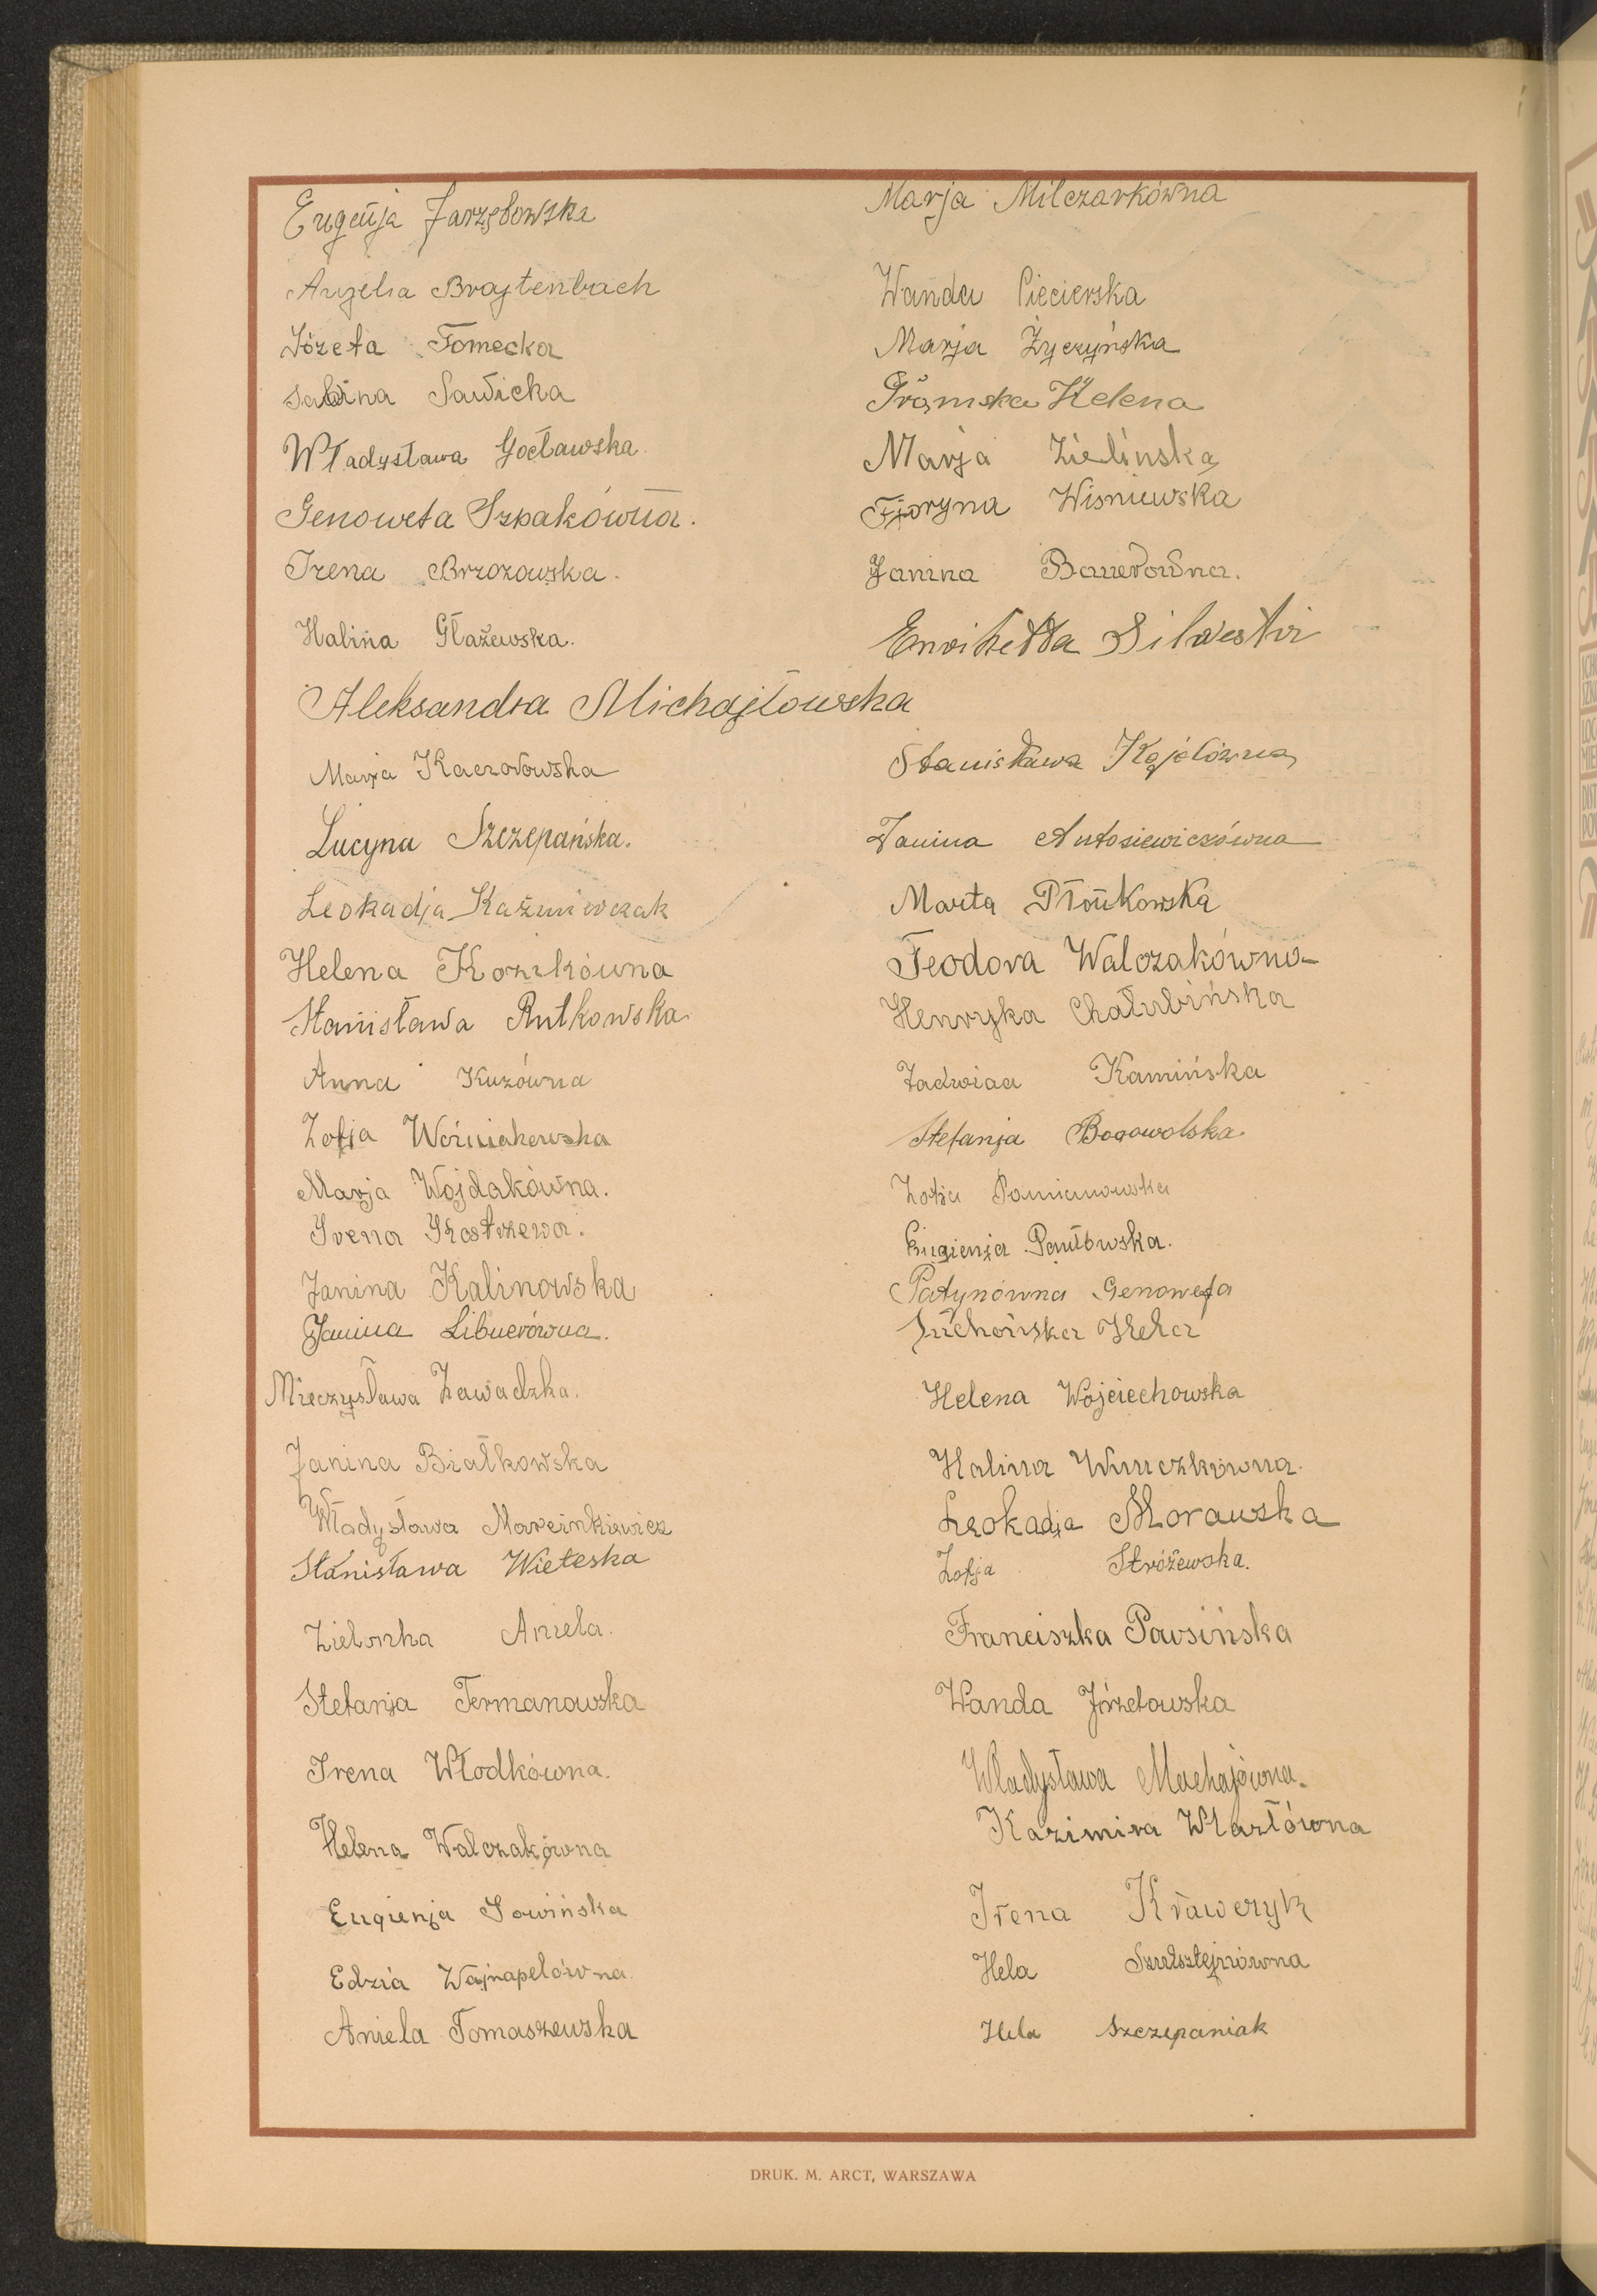 Eugenja Jarzębowska
Angelia Brajtenbach
Józefa Tomecka
Sabina Sawicka
Władysława Gocławska
Genowefa Szpakówna.
Irena Brzozowska.
Halina Głażewska.
Aleksandra Michajłowska
Marja Kaczorowska
Lucyna Szczepańska.
Leokadja Kaźmierczak
Helena Kozikówna
Stanisława Rutkowska
Anna Kuzówna
Zofja Woźniakowska
Marja Wojdakówna.
Irena Kostrzewa.
Janina Kalinowska
Janina Libnerówna.
Mieczysława Zawadzka.
Janina Białkowska
Władysława Marcinkiewicz
Stanisława Wieteska
Zielonka Aniela.
Stefanja Fermanowska
Irena Włodkówna.
Helena Walczakówna
Eugienja Sowińska
Edzia Wajnapelówna
Aniela Tomaszewska
Marja Milczarkówna
Wanda Ciecierska
Marja Życzyńska
Helena
Marja Zielinska
Floryna Wisniewska
Janina Bauerówna.
Enrichetta Silvestri
Stanisława
Janina Antosiewiczówna
Marta Płonkowska
Teodora Walczakówna
Henryka Chałubińska
Jadwiga Kamińska
Stefanja Bogowolska
Zofja Pomianowska
Eugienja Pawłowska.
Patynówna Genowefa
Suchońska Hela
Helena Wojciechowska
Halina
Leokadja Morawska
Zofja Stróżewska.
Franciszka Pawsińska
Wanda Józefowska
Władysława Machajówna.
Kazimira Wlazłówna
Irena Krawczyk
Hela Szulsztejnówna
Hela Szczepaniak
DRUK. M. ARCT, WARSZAWA